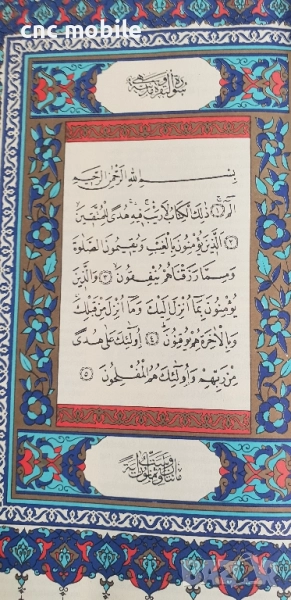 cnc_mobile
سورة البقرة مدنية
بسم الله الرحمن الرحيم
الٓمٓ ﴿١﴾ ذٰلِكَ الْكِتَابُ لَا رَيْبَ فِيهِ هُدًى لِلْمُتَّقِينَ
﴿٢﴾ الَّذِينَ يُؤْمِنُونَ بِالْغَيْبِ وَيُقِيمُونَ الصَّلٰوةَ
وَمِمَّا رَزَقْنَاهُمْ يُنْفِقُونَ ﴿٣﴾ وَالَّذِينَ
يُؤْمِنُونَ بِمَا أُنْزِلَ إِلَيْكَ وَمَا أُنْزِلَ مِنْ قَبْلِكَ
وَبِالْاٰخِرَةِ هُمْ يُوقِنُونَ ﴿٤﴾ أُولٰئِكَ عَلٰى هُدًى
مِنْ رَبِّهِمْ وَأُولٰئِكَ هُمُ الْمُفْلِحُونَ ﴿٥﴾
مائتان وست وثمانون آية